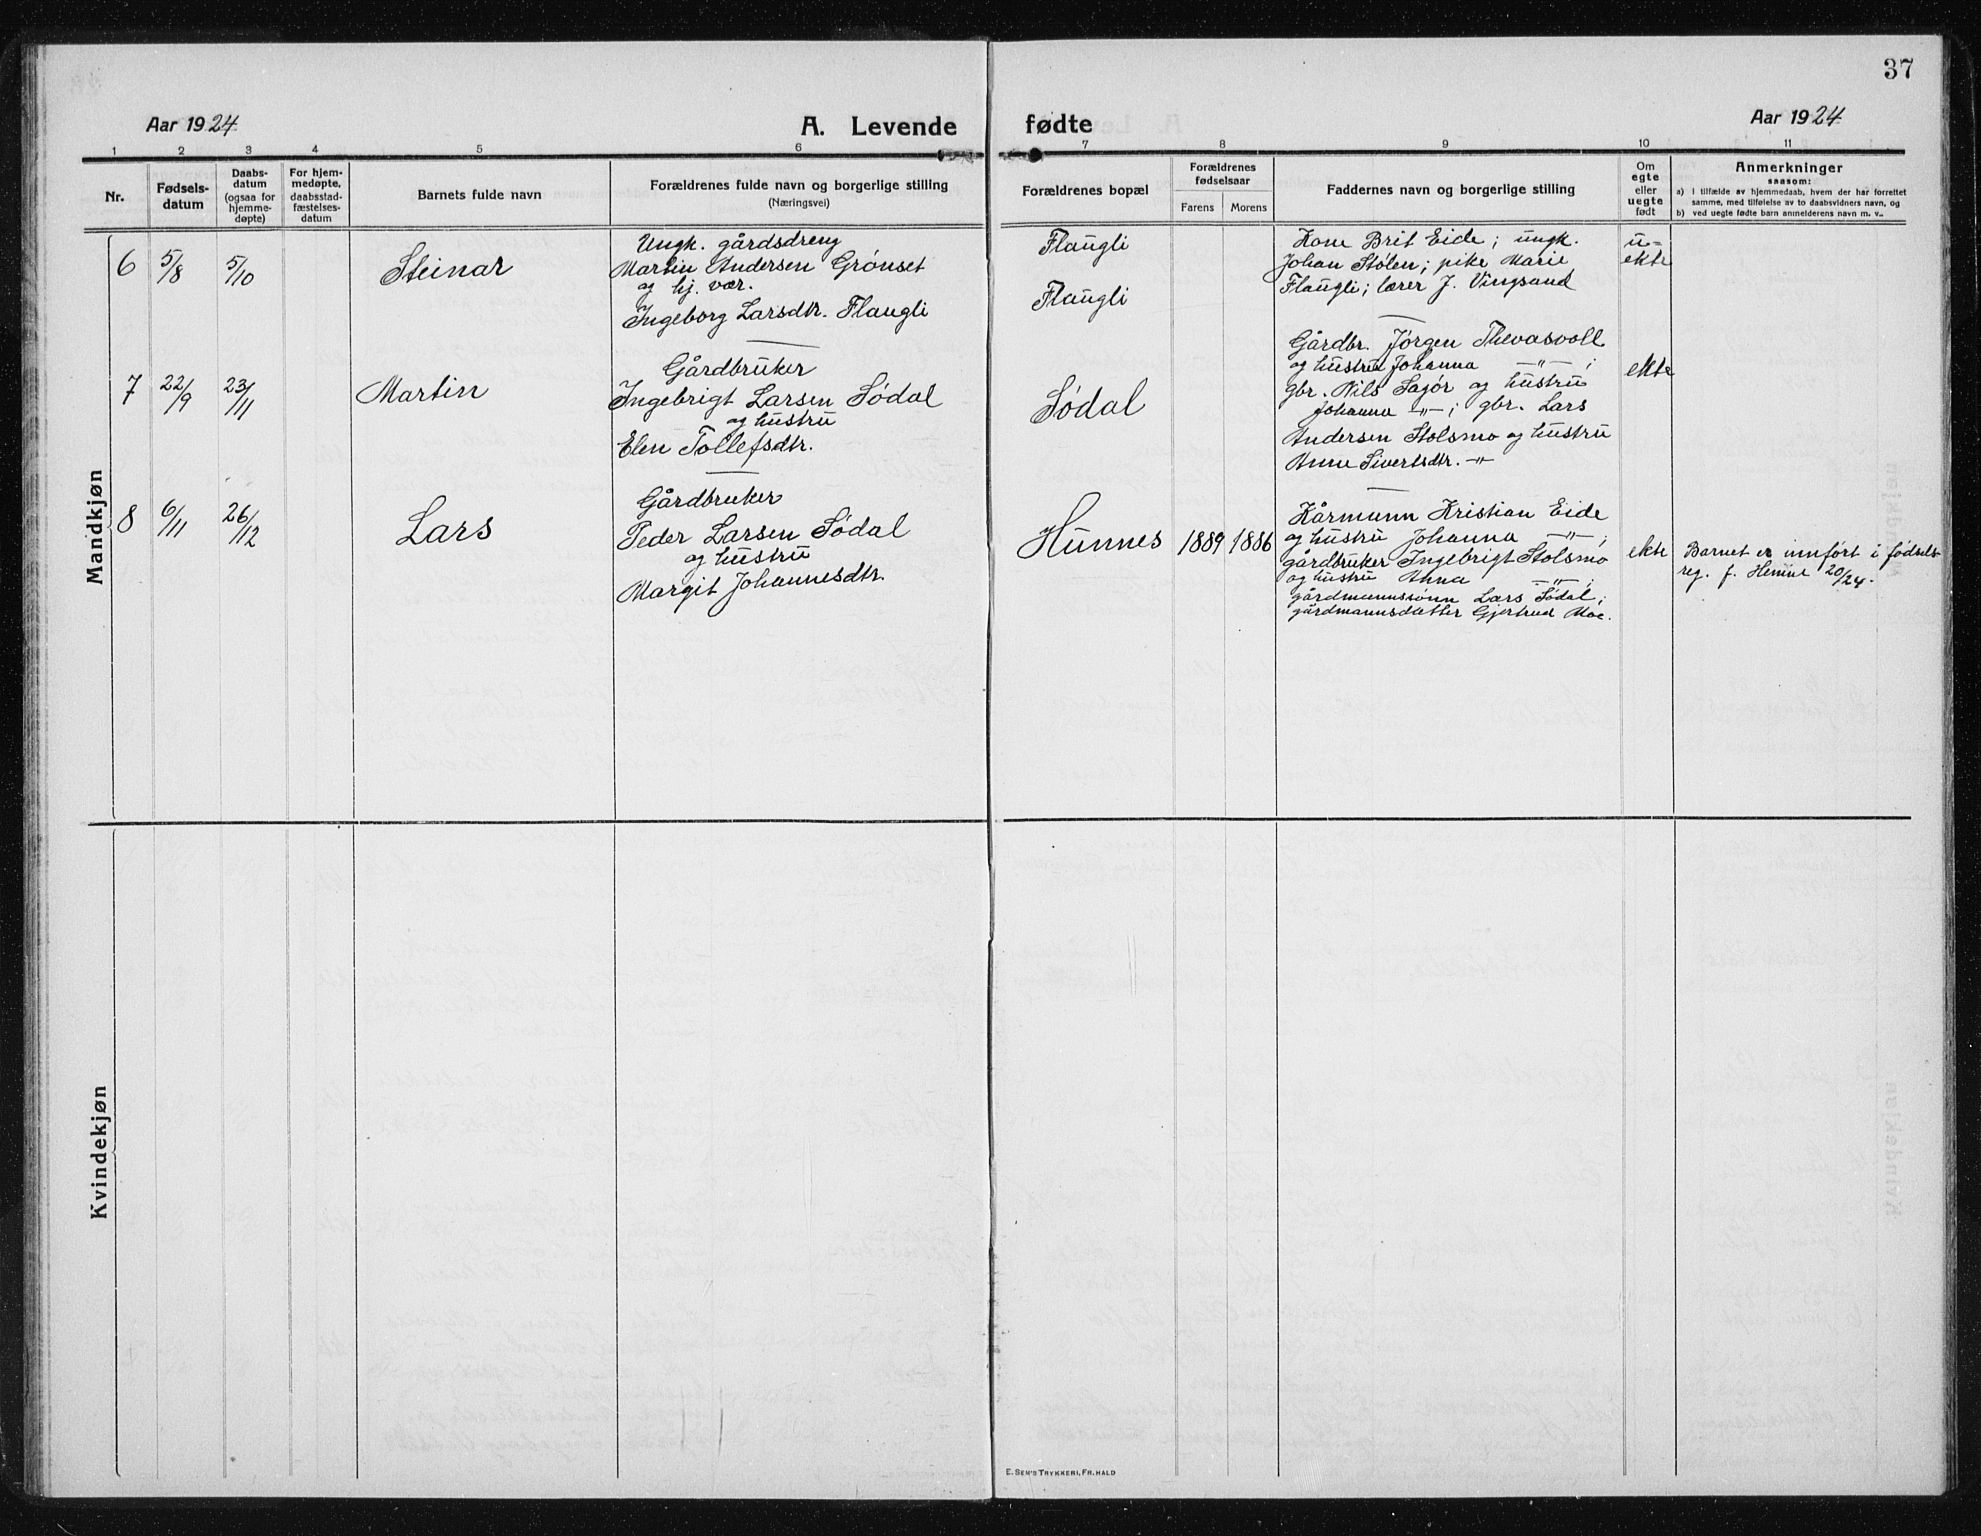 37
Aar 1924
A. Levende
fødte
Aar 1924
1 2 3 4 5 6 7 8 9 10 11
Nr.
Fødsels-
datum
Daabs-
datum
(ogsaa for
hjemme-
døpte)
For hjem-
medøpte,
daabsstad-
fæstelses-
datum
Barnets fulde navn
Forældrenes fulde navn og borgerlige stilling
(Næringsvei)
Forældrenes bopæl
Forældrenes
fødselsaar
Farens
Morens
Faddernes navn og borgerlige stilling
Om
egte
eller
uegte
født
Anmerkninger
saasom:
a) I tilfælde av hjemmedaab, hvem der har forrettet
samme, med tilføielse av to daabsvidners navn, og
b) ved uegte fødte barn anmelderens navn m. v..
Mandkjøn
6
5/8
5/10
Steinar
Ungk. gårdsdreng
Martin Andersen Grønset
og hj. vær.
Ingeborg Larsdtr. Flaugli
Flaugli
Flaugli
Kone Brit Eide; ungk.
Johan Stølen; pike Marie
Flaugli; lærer J. Vingsand
u-
ekte
7
22/9
23/11
Martin
Gårdbruker
Ingebrigt Larsen Sødal
og hustru
Elen Tollefsdtr.
Sødal
Gårdbr. Jørgen Thevasvoll
og hustru Johanna —"— ;
gbr. Nils Sagør og hustru
Johanna —"— ; gbr. Lars
Andersen Stolsmo og hustru
Anne Sivertsdtr. —"—
ekte
8
6/11
26/12
Lars
Gårdbruker
Peder Larsen Sødal
og hustru
Margit Johannesdtr.
Hunnes
1889
1886
Kårmann Kristian Eide
og hustru Johanna —"— ;
gårdbruker Ingebrigt Stolsmo
og hustru Anna —"— ;
gårdmannssønn Lars Sødal;
gårdmannsdatter Gjertrud Moe.
ekte
Barnet er innført i fødsels-
reg. f. Hemne 20/24.
Kvindekjøn
E. Sem's Trykkeri, Fr.hald